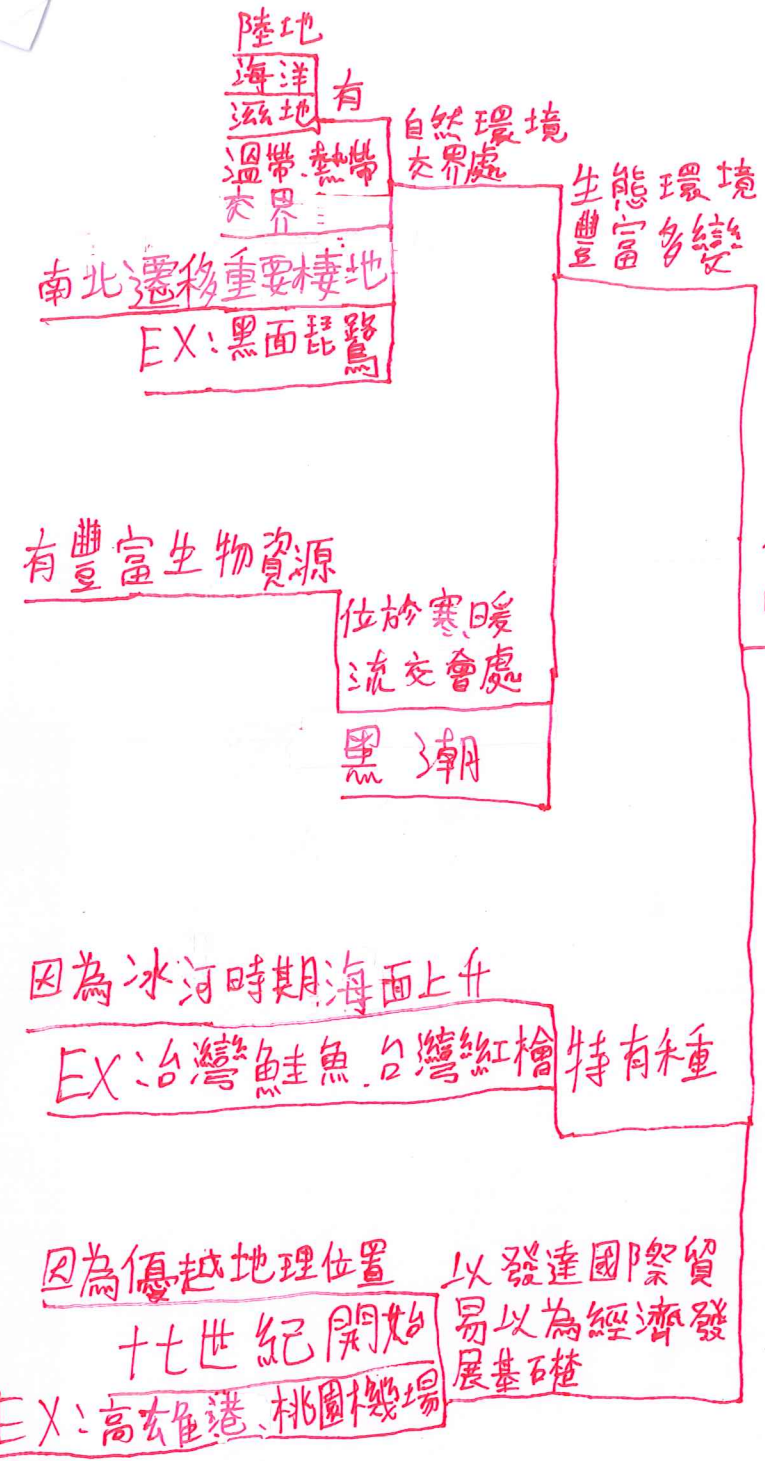 陸地
海洋
濕地
有
溫帶、熱帶
交界
自然環境
交界處
生態環境
豐富多變
南北遷移重要棲地
EX:黑面琵鷺
有豐富生物資源
位於寒、暖
流交會處
黑潮
因為冰河時期海面上升
EX:台灣鮭魚、台灣紅檜
特有種
因為優越地理位置
十七世紀開始
EX:高雄港、桃園機場
以發達國際貿
易以為經濟發
展基石楂